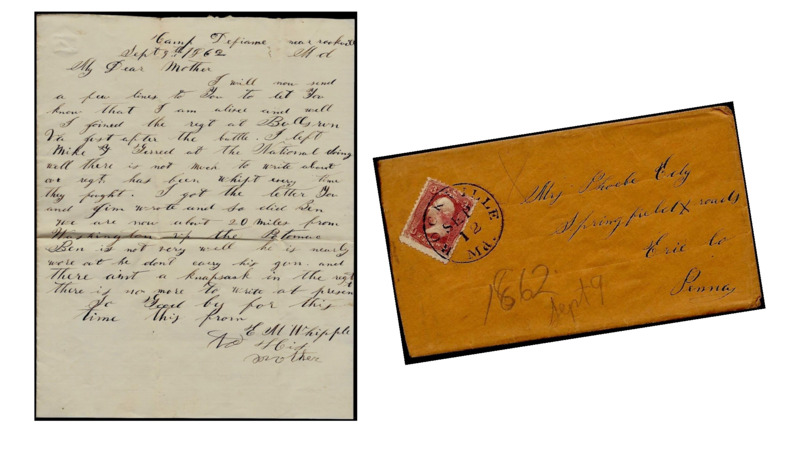 Camp Deframe near rockville
Sept 9th 1862 Md
My Dear Mother
I will now send
a few lines to You to let You
know that I am alive and well
I joined the regt at Bulls run
Va just after the battle. I left
Mike at the National doing
well there is not much to write about
our regt has been whipt every time
they fought. I got the letter You
and Jim wrote and so did Ben
we are now about 20 miles from
Washington up the Potomac
Ben is not very well he is nearly
wore out he dont carry his gun and
there aint a knapsack in the regt
there is no more to write at present
So Good by for this
time this from
E M Whipple
to His
Mother
ROCKVILLE
SEP
12
Md.
Mrs Phoebe Edy
Springfield X roads
Erie Co
Penna
1862.
Sept 9